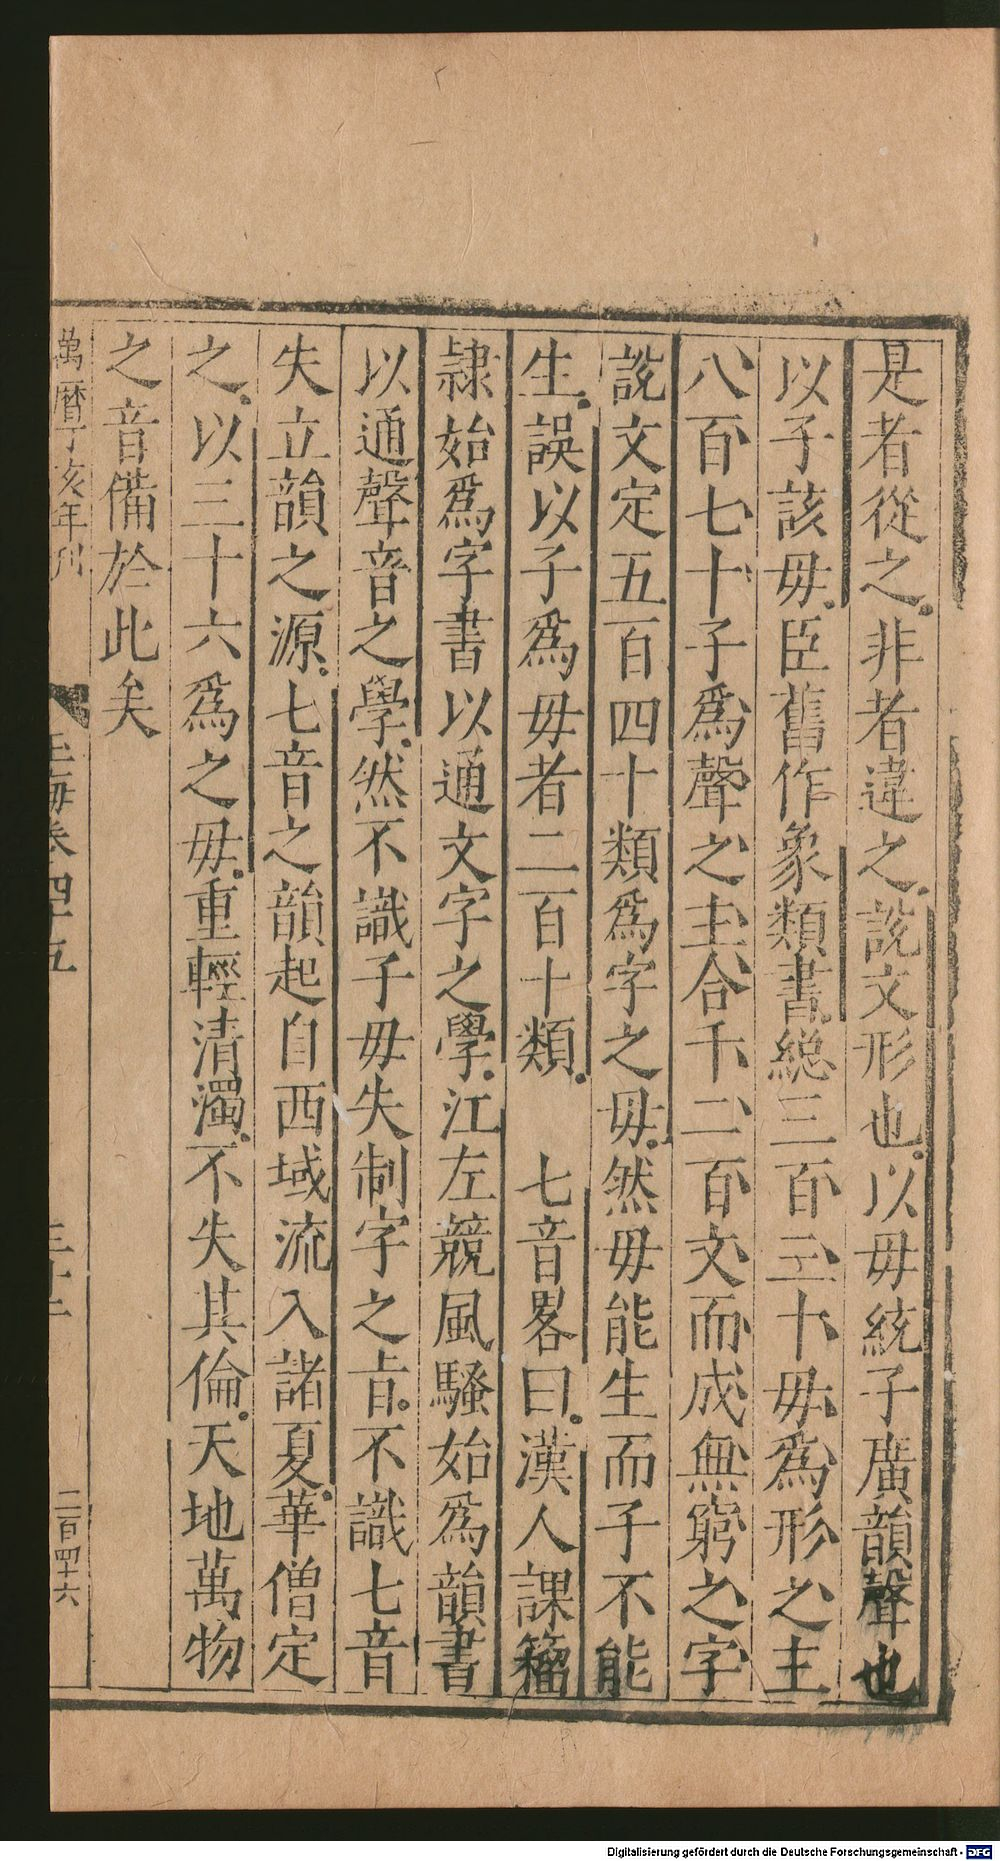 是者從之非者違之說文形也以毋統子廣韻聲也
以子該毋臣舊作象類書総三百三十毋爲形之主
八百七十子爲聲之主合千二百文而成無窮之字
說文定五百四十類爲字之毋然毋能生而子不能
生誤以子爲毋者二百十類　七音畧曰漢人課籀
隷始爲字書以通文字之學江左競風騷始爲韻書
以通聲音之學然不識子毋失制字之㫖不識七音
失立韻之源七音之韻起自西域流入諸夏華僧定
之以三十六爲之毋重輕清濁不失其倫天地萬物
之音備於此矣
萬曆丁亥年刋　玉海卷四十五　三十二　二百四十六
Digitalisierung gefördert durch die Deutsche Forschungsgemeinschaft - DFG